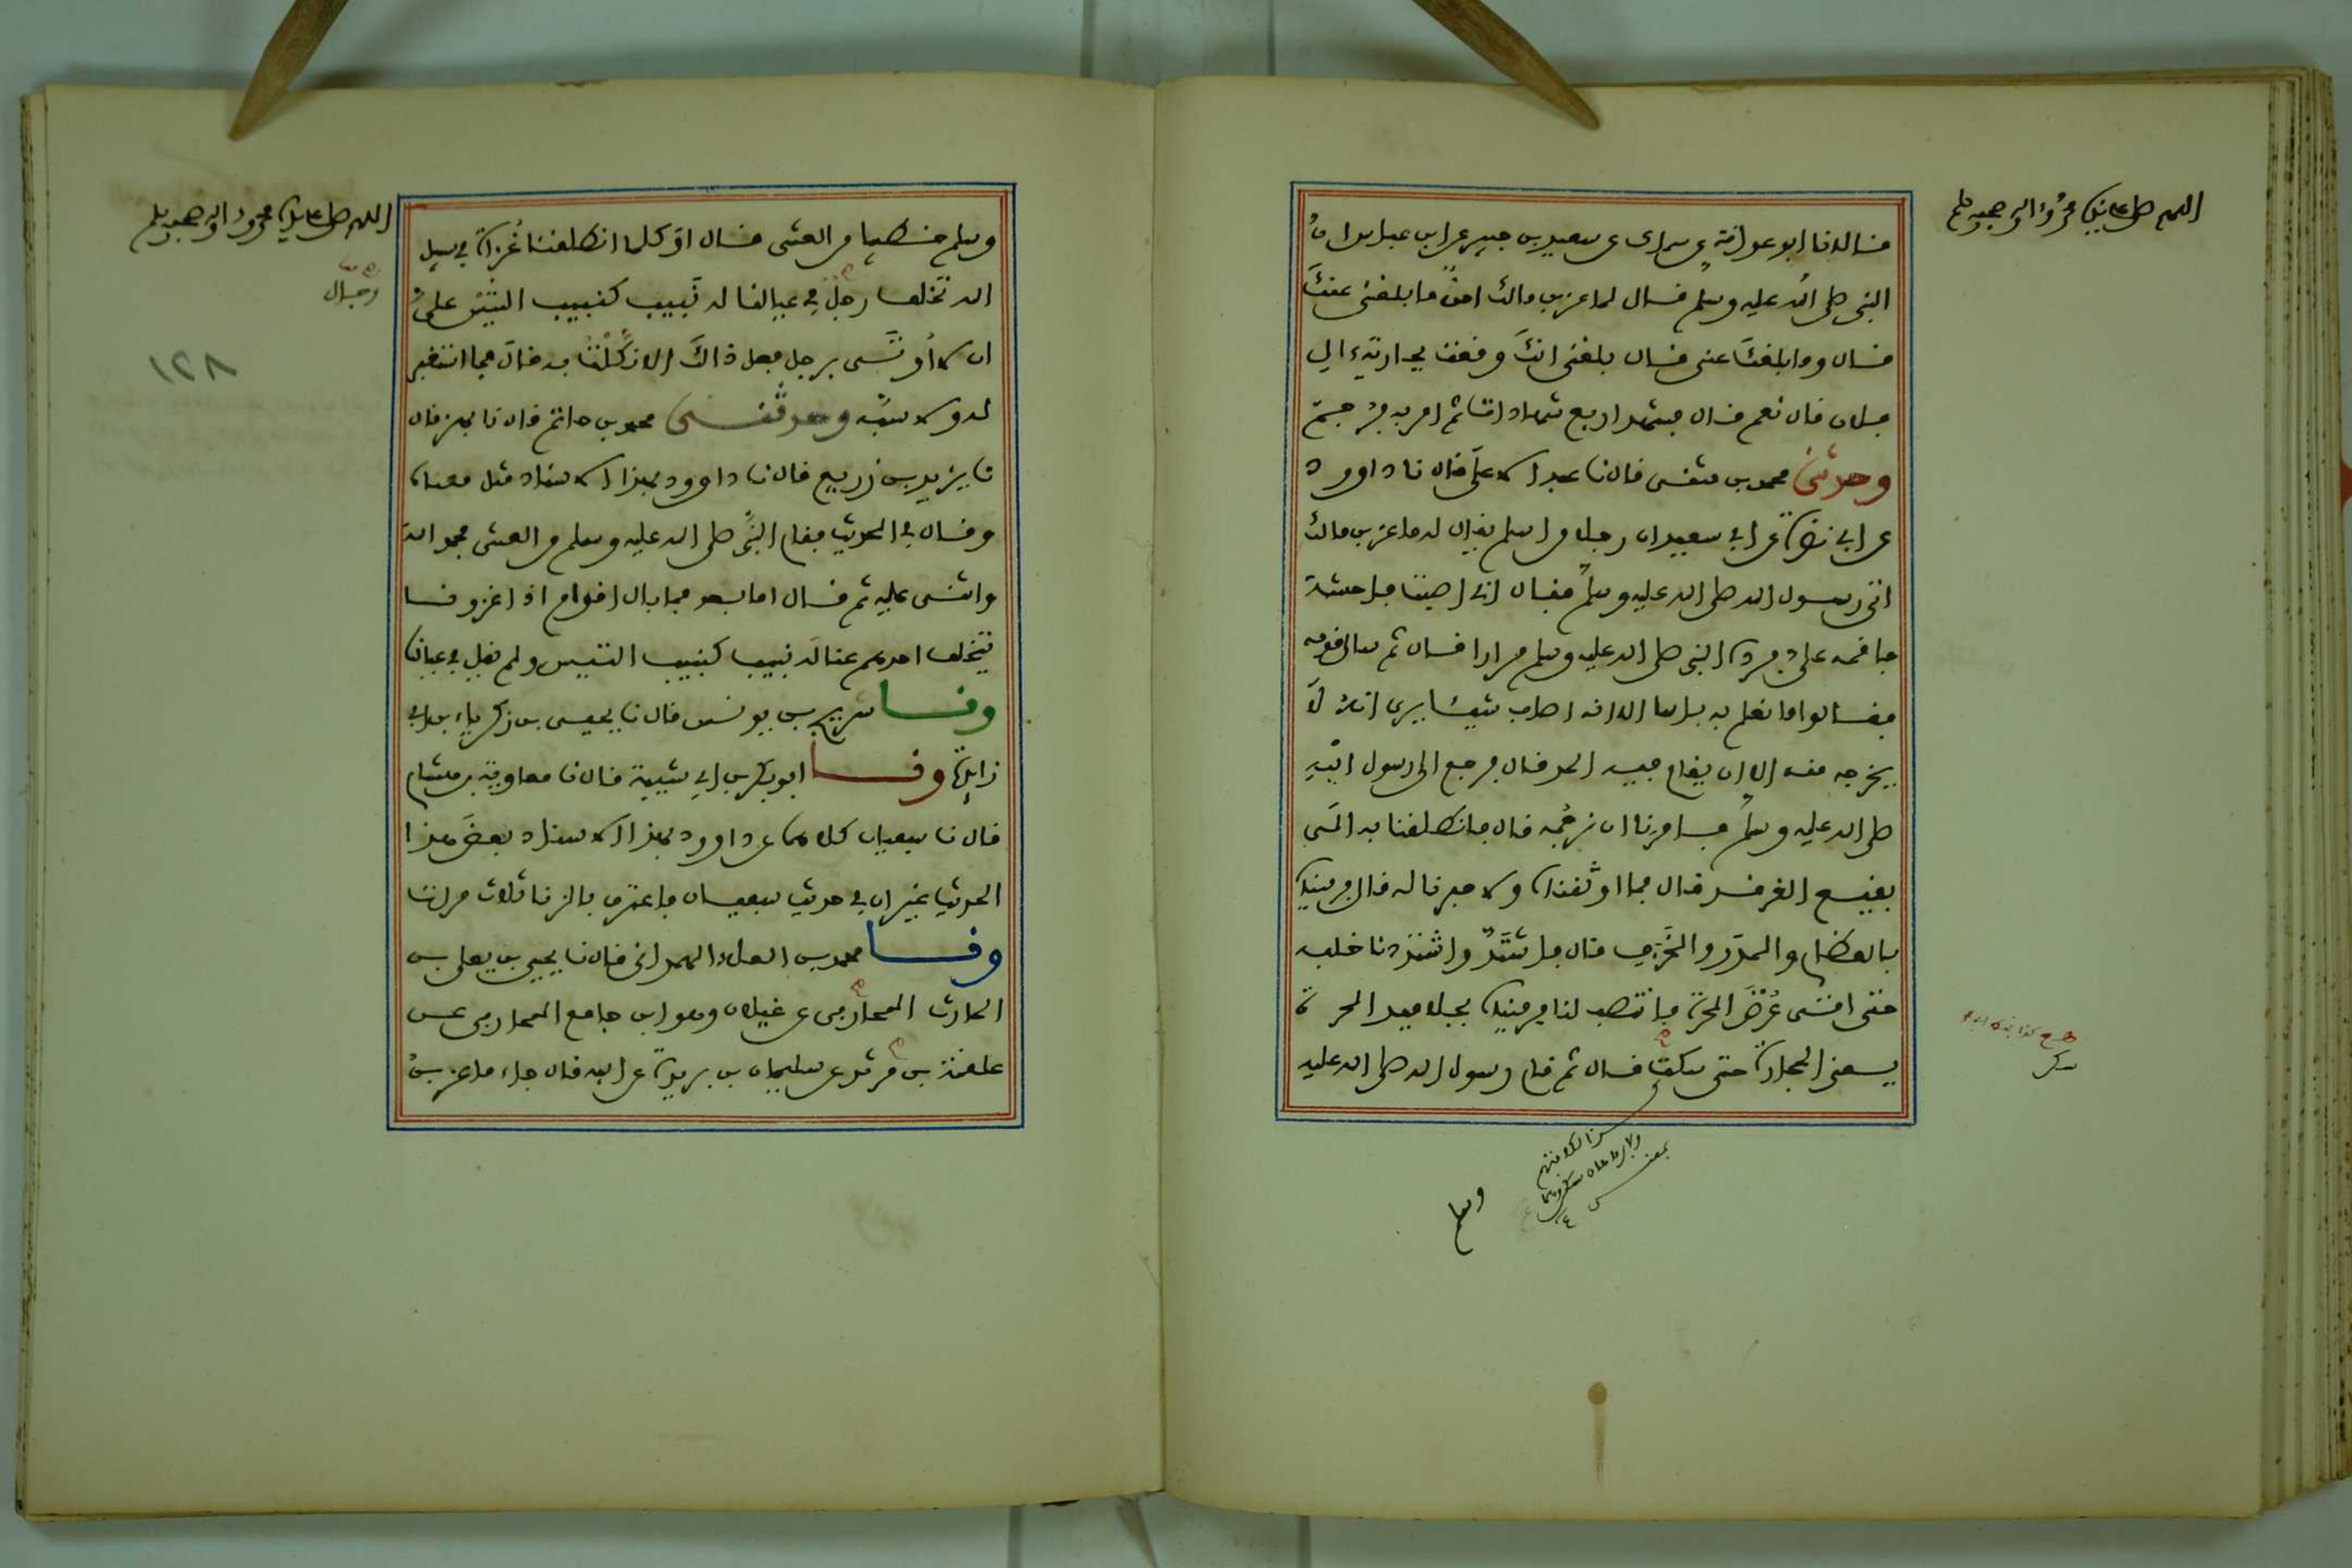 اللهم صل على نبينا محمد واله وصحبه وسلم
قالا نا ابو عوانة عن سماك عن سعيد بن جبير عن ابن عباس ان
النبي صلى الله عليه وسلم قال لماعز بن مالك احق ما بلغني عنك
قال وما بلغك عني قال بلغني انك وقعت بجارية ءال
فلان قال نعم قال فشهد اربع شهادات ثم امر به فرجم
وحدثني محمد بن مثنى قال نا عبد الاعلى قال نا داوود
عن ابي نضرة عن ابي سعيد ان رجلا من اسلم يقال له ماعز بن مالك
اتى رسول الله صلى الله عليه وسلم فقال اني اصبت فاحشة
فاقمه علي فرده النبي صلى الله عليه وسلم مرارا قال ثم سال قومه
فقالوا ما نعلم به باسا الا انه اصاب شيئا يرى انه لا
يخرجه منه الا ان يقام فيه الحد قال فرجع الى رسول الله
صلى الله عليه وسلم فامرنا ان نرجمه قال فانطلقنا به الى
بقيع الغرقد قال فما اوثقناه ولا حفرنا له قال فرميناه
بالعظام والمدر والخزف قال فاشتد واشتددنا خلفه
حتى اتى عرض الحرة فانتصب لنا فرميناه بجلاميد الحرة
يعني الحجارة حتى سكت قال ثم قام رسول الله صلى الله عليه
وسلم
اللهم صل على نبينا محمد واله وصحبه وسلم
١٢٨
وسلم خطيبا من العشي قال او كلما انطلقنا غزاة في سبيل
الله تخلف رجل في عيالنا له نبيب كنبيب التيس علي
ان لا اوتى برجل فعل ذاك الا نكلت به قال فما استغفر
له ولا سبه وحدثني محمد بن حاتم قال نا بهز قال
نا يزيد بن زريع قال نا داوود بهذا الاسناد مثل معناه
وقال في الحديث فقام النبي صلى الله عليه وسلم من العشي فحمد الله
واثنى عليه ثم قال اما بعد فما بال اقوام اذا غزونا
يتخلف احدهم عنا له نبيب كنبيب التيس ولم يقل في عيالنا
ونا سريج بن يونس قال نا يحيى بن زكرياء بن ابي
زايدة ونا ابو بكر بن ابي شيبة قال نا معاوية بن هشام
قال نا سفيان كلاهما عن داوود بهذا الاسناد بعض هذا
الحديث غير ان في حديث سفيان فاعترف بالزنا ثلاث مرات
ونا محمد بن العلاء الهمداني قال نا يحيى بن يعلى بن
الحارث المحاربي عن غيلان وهو ابن جامع المحاربي عن
علقمة بن مرثد عن سليمان بن بريدة عن ابيه قال جاء ماعز بن